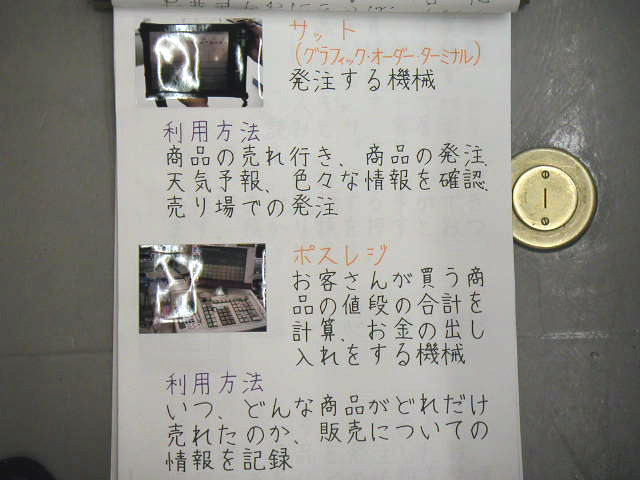 サット
(グラフィック・オーダー・ターミナル)
発注する機械
利用方法
商品の売れ行き、商品の発注、
天気予報、色々な情報を確認、
売り場での発注
ポスレジ
お客さんが買う商
品の値段の合計を
計算、お金の出し
入れをする機械
利用方法
いつ、どんな商品がどれだけ
売れたのか、販売についての
情報を記録